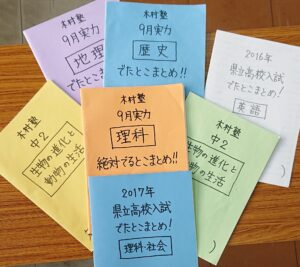 木村塾
9月実力
地理
でたとこまとめ!!
木村塾
9月実力
歴史
でたとこまとめ!!
2016年
県立高校入試
でたとこまとめ!
英語
木村塾
中2
生物の進化と
動物の生活
木村塾
9月実力
理科
絶対でるとこまとめ!!
木村塾
中2
生物の進化と
動物の生活
2017年
県立高校入試
でたとこまとめ!
理科・社会